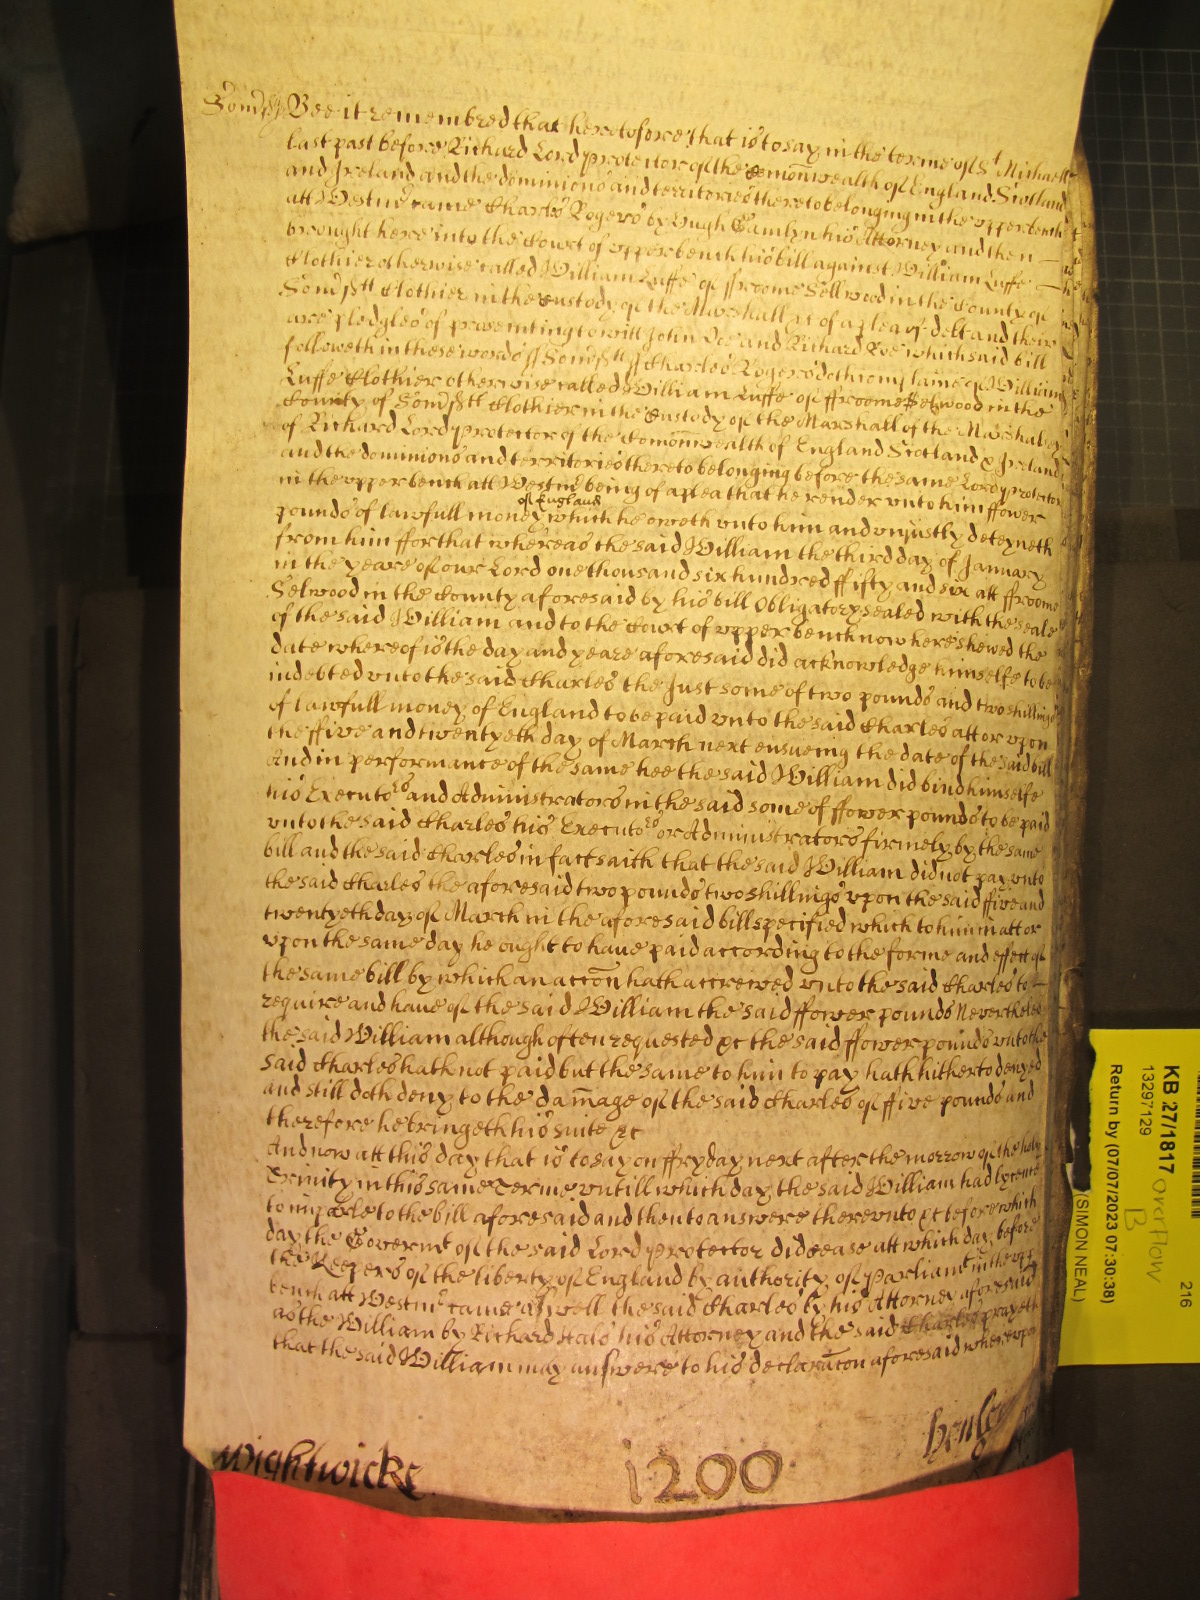 Somst Bee it remembred that heretofore that is to say in the terme of St Michaell
last past before Richard Lord protector of the Comonwealth of England Scotland
and Ireland and the dominions and territories thereto belonging in the upper bench
att Westmr came Charles Rogers by Hugh Tamlyn his Attorney and then
brought here into the Court of upper bench his bill against William Luffe
Clothier otherwise called William Luffe of ffroome Sellwood in the County of
Somst Clothier in the Custody of the Marshall &c of a plea of debt and there
are pledges of prosecuting to witt John Doe and Richard Roe which said bill
followeth in these words ss Somst ss Charles Rogers doth complaine of William
Luffe Clothier otherwise called William Luffe of ffroome Selwood in the
County of Somst Clothier in the Custody of the Marshall of the Marshalsey
of Richard Lord protector of the Comonwealth of England Scotland & Ireland
and the dominions and territories thereto belonging before the same Lord protector
in the upper bench att Westmr being of a plea that he render unto him ffower
of England
pounds of lawfull money which he oweth unto him and unjustly deteyneth
from him ffor that whereas the said William the third day of January
in the yeare of our Lord one thousand six hundred ffifty and six att ffroome
Selwood in the County aforesaid by his bill Obligatory sealed with the seale
of the said William and to the Court of upper bench now here shewed the
date whereof is the day and yeare aforesaid did acknowledge himselfe to be
indebted unto the said Charles the Just some of two pounds and two shillings
of lawfull money of England to be paid unto the said Charles att or upon
the ffive and twentyeth day of March next ensueing the date of the said bill
And in performance of the same hee the said William did bind himselfe
his Executors and Administrators in the said some of ffower pounds to be paid
unto the said Charles his Executors or Administrators firmely by the same
bill and the said Charles in fact saith that the said William did not pay unto
the said Charles the aforesaid two pounds two shillings upon the said ffive and
twentyeth day of March in the aforesaid bill specified which to him in att or
upon the same day he ought to have paid according to the forme and effect of
the same bill by which an accon hath accrewed unto the said Charles to
require and have of the said William the said ffower pounds Neverthelesse
the said William although often requested &c the said ffower pounds unto the
said Charles hath not paid but the same to him to pay hath hitherto denyed
and still doth deny to the damage of the said Charles of ffive pounds and
therefore he bringeth his suite &c
And now att this day that is to say on ffryday next after the morrow of the holy
Trinity in this same Terme untill which day the said William had lycence
to imparle to the bill aforesaid and then to answere thereunto &c before which
day the Governmt of the said Lord protector did cease att which day before
the Keepers of the liberty of England by authority of Parliamt in the upper
bench att Westmr came aswell the said Charles by his Attorney aforesaid
as the William by Richard Hals his Attorney and the said Charles prayeth
that the said William may answere to his declaracon aforesaid whereupon
Wightwicke
1200
Henley
KB 27/1817 overflow
B
216
13297129
Return by (07/07/2023 07:30:38)
(SIMON NEAL)